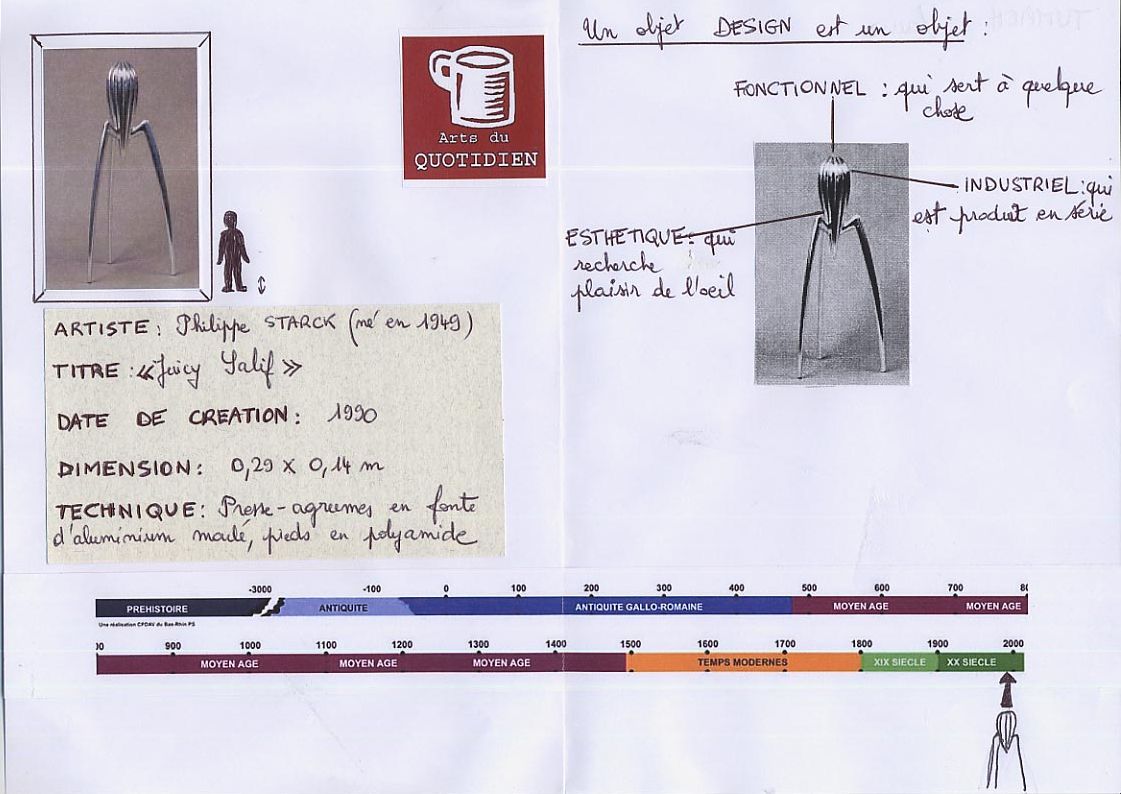 Arts du
QUOTIDIEN
ARTISTE : Philippe STARCK (né en 1949)
TITRE : « Juicy Salif »
DATE DE CREATION : 1990
DIMENSION : 0,29 x 0,14 m
TECHNIQUE : Presse-agrumes en fonte
d'aluminium moulé, pieds en polyamide
Un objet DESIGN est un objet :
FONCTIONNEL : qui sert à quelque
chose
INDUSTRIEL : qui
est produit en série
ESTHETIQUE : qui
recherche
plaisir de l'oeil
-3000 -100 0 100 200 300 400 500 600 700 80
PREHISTOIRE ANTIQUITE ANTIQUITE GALLO-ROMAINE MOYEN AGE MOYEN AGE
Une réalisation CPDAV du Bas-Rhin PS
00 900 1000 1100 1200 1300 1400 1500 1600 1700 1800 1900 2000
MOYEN AGE MOYEN AGE MOYEN AGE TEMPS MODERNES XIX SIECLE XX SIECLE